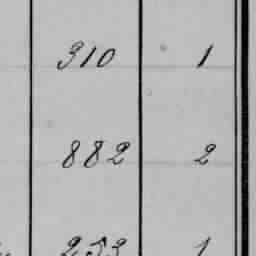 310 1
882 2
253 1